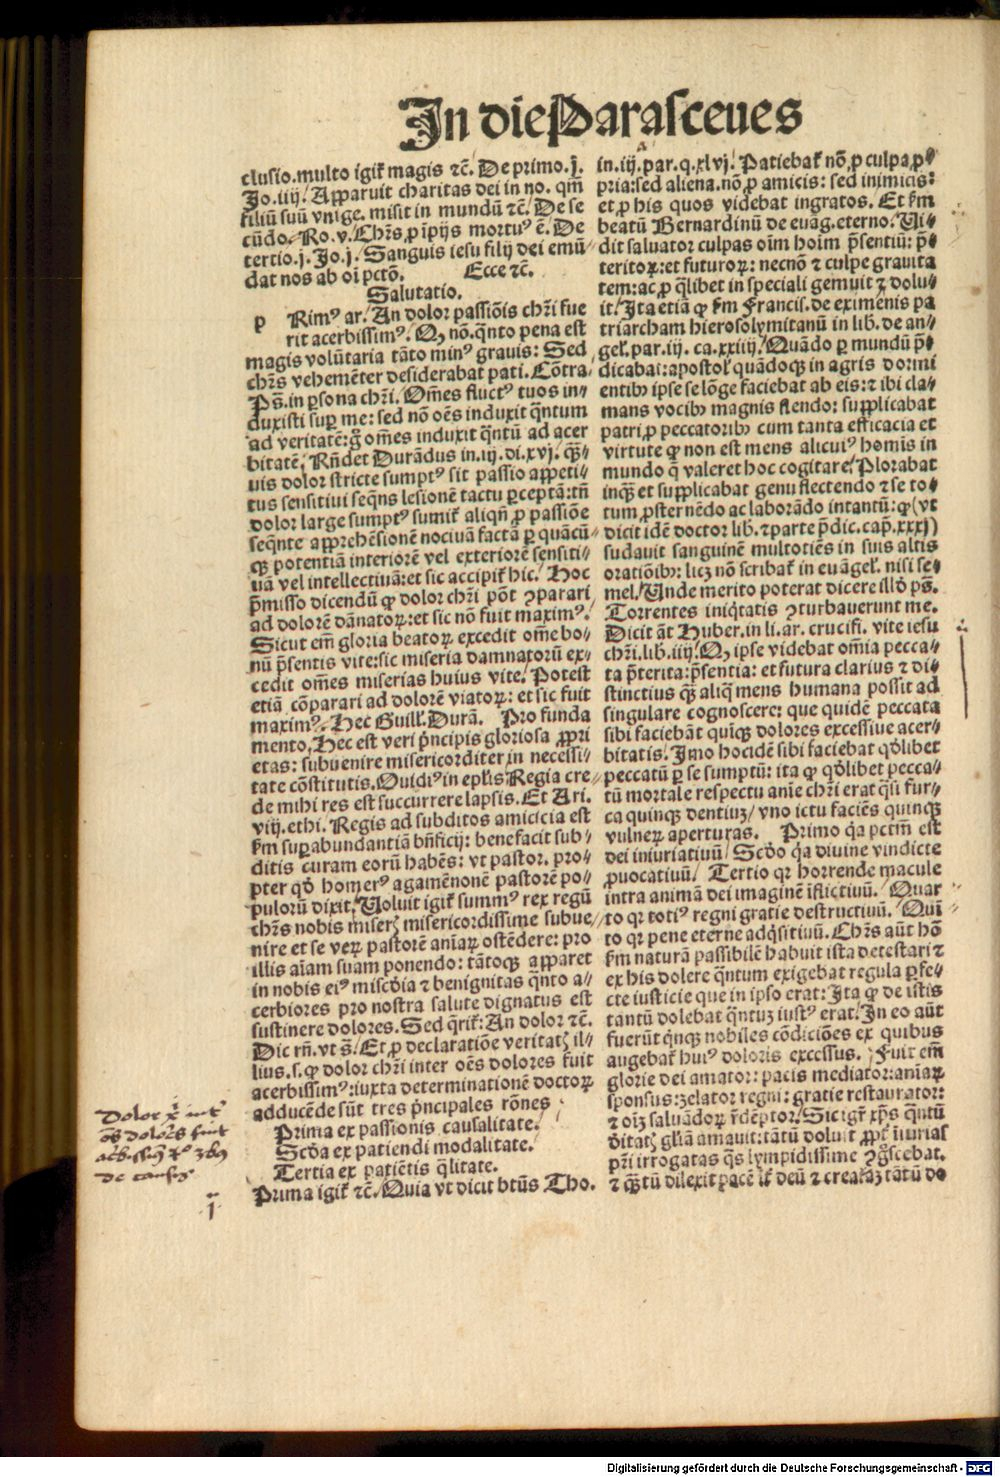 In die Parasceues
clusio.multo igit᷑ magis ⁊c̄. De primo.j.
Jo.iiij. Apparuit charitas dei in no. qm̄
filiū suū vnige. misit in mundū ⁊c̄. De se
cūdo. Ro.v. Chr̄s ꝓ īpijs mortuꝰ ē. De
tertio.j. Jo.j. Sanguis iesu filij dei emū
dat nos ab oī pctō. Ecce ⁊c̄.
Salutatio.
p Rimꝰ ar. An dolor passiōis chr̄i fue
rit acerbissimꝰ. Q, nō.q̄nto pena est
magis volūtaria tāto minꝰ grauis: Sed
chr̄s vehemēter desiderabat pati. Cōtra
Ps̄.in ꝑsona chr̄i. Oēs fluctꝰ tuos in-
duxisti suꝑ me: sed nō oēs induxit q̄ntum
ad veritatē:g̊ om̄es induxit q̄ntū ad acer
bitatē. Rn̄det Durādus in.iij.di.xvj. q̄ꝫ-
uis dolor stricte sumptꝰ sit passio appeti-
tus sensitiui seq̄ns lesionē tactu ꝑceptā:tn̄
dolor large sumptꝰ sumit᷑ aliqn̄ ꝓ passiōe
seq̄nte apprehēsionē nociuā factā ꝑ quācū-
qꝫ potentiā interiorē vel exteriorē sensiti-
uā vel intellectiuā:et sic accipit᷑ hic. Hoc
p̄misso dicendū ꝙ dolor chr̄i pōt ꝯparari
ad dolorē dānatoꝝ:et sic nō fuit maximꝰ.
Sicut em̄ gloria beatoꝝ excedit om̄e bo-
nū p̄sentis vite:sic miseria damnatorū ex-
cedit om̄es miserias huius vite. Potest
etiā cōparari ad dolorē viatoꝝ: et sic fuit
maximꝰ. Hec Guill̄. Durā. Pro funda
mento. Hec est veri p̄ncipis gloriosa ꝓpri
etas: subuenire misericorditer in necessi-
tate cōstitutis. Ouidiꝰ in epl̄is Regia cre-
de mihi res est succurrere lapsis. Et Ari.
viij. ethi. Regis ad subditos amicicia est
fm̄ suꝑabundantiā bn̄ficij: benefacit sub-
ditis curam eorū habēs: vt pastor. pro-
pter qď homerꝰ agamēnonē pastorē po-
pulorū dixit. Uoluit igit᷑ summꝰ rex regū
chr̄s nobis miseris misericordissime subue-
nire et se veꝝ pastorē aīaꝝ ostēdere: pro
illis aīam suam ponendo: tātoqꝫ apparet
in nobis eiꝰ miscďia ⁊ benignitas q̄nto a-
cerbiores pro nostra salute dignatus est
sustinere dolores. Sed q̄rit᷑: An dolor ⁊c̄.
Dic rn̄. vt s̄. Et ꝓ declaratiōe veritatꝭ il-
lius.s.ꝙ dolor chr̄i inter oēs dolores fuit
acerbissimꝰ:iuxta determinationē doctoꝝ
adducēde sūt tres p̄ncipales rōnes
Prima ex passionis causalitate.
Scďa ex patiendi modalitate.
Tertia ex patiētis q̄litate.
Prima igit᷑ ⁊c̄. Quia vt dicit btūs Tho.
in.iij.par.q.xlvj. Patiebat᷑ nō ꝓ culpa ꝓ-
pria:sed aliena. nō ꝓ amicis: sed inimicis:
et ꝓ his quos videbat ingratos. Et fm̄
beatū Bernardinū de euāg.eterno. Ui-
dit saluator culpas oīm hoīm p̄sentiū: p̄-
teritoꝝ:et futuroꝝ: necnō ⁊ culpe grauita
tem:ac ꝓ q̄libet in speciali gemuit ⁊ dolu-
it. Ita etiā ꝙ fm̄ Francis. de eximenis pa
triarcham hierosolymitanū in lib. de an-
gel̄.par.iij. ca.xxiiij. Quādo ꝑ mundū p̄-
dicabat:apostol̄ quādoqꝫ in agris dormi
entibꝫ ipse se lōge faciebat ab eis:⁊ ibi cla-
mans vocibꝫ magnis flendo: supplicabat
patri ꝓ peccatoribꝫ cum tanta efficacia et
virtute ꝙ non est mens alicuiꝰ hominis in
mundo q̄ valeret hoc cogitare. Plorabat
inqꝫ et supplicabat genu flectendo ⁊ se to-
tum ꝓsternēdo ac laborādo intantū: ꝙ (vt
dicit idē doctor lib. ⁊parte p̄dic.cap̄.xxxj)
sudauit sanguinē multotiēs in suis altis
orationibꝫ: licꝫ nō scribat᷑ in euāgel̄. nisi se-
mel. Unde merito poterat dicere illď ps̄.
Torrentes iniq̄tatis ꝯturbauerunt me.
Dicit āt Huber.in li.ar. crucifi. vite iesu
chr̄i.lib.iiij. Q, ipse videbat om̄ia pecca-
ta p̄terita:p̄sentia: et futura clarius ⁊ di-
stinctius q̄ꝫ aliq̄ mens humana possit ad
singulare cognoscere: que quidē peccata
sibi faciebāt quīqꝫ dolores excessiue acer-
bitatis. Imo hocidē sibi faciebat qďlibet
peccatū ꝑ se sumptū: ita ꝙ qďlibet pecca-
tū mortale respectu anīe chr̄i erat q̄si fur-
ca quinqꝫ dentiuꝫ vno ictu faciēs quinqꝫ
vulneꝝ aperturas. Primo q̄a pctm̄ est
dei iniuriatiuū. Scďo q̄a diuine vindicte
ꝓuocatiuū. Tertio qr horrende macule
intra animā dei imaginē īflictiuū. Quar
to qr totiꝰ regni gratie destructiuū. Quī-
to qr pene eterne adq̄sitiuū. Chr̄s aūt hō
fm̄ naturā passibilē habuit ista detestari ⁊
ex his dolere q̄ntum exigebat regula ꝑfe-
cte iusticie que in ipso erat: Ita ꝙ de istis
tantū dolebat q̄ntuꝫ iustꝰ erat. In eo aūt
fuerūt q̄nqꝫ nobiles cōdiciōes ex quibus
augebat᷑ huiꝰ doloris excessus. Fuit em̄
glorie dei amator: pacis mediator:aīaꝝ
sponsus:zelator regni: gratie restaurator:
⁊ oīꝫ saluādoꝝ r̄dēptor. Sic igr̄ xp̄s q̄ntū
ďitatꝭ gl̄iā amauit:tātū doluit ꝓpt̄ iniurias
pr̄i irrogatas q̄s lympidissime ꝯg̊scebat.
⁊ q̄ꝫtū dilexit pacē īt᷑ deū ⁊ creat᷑aꝫ tātū do
Dolor xi int̄
oēs dolores fuit
acerbissimꝰ
de causis
1
Digitalisierung gefördert durch die Deutsche Forschungsgemeinschaft - DFG